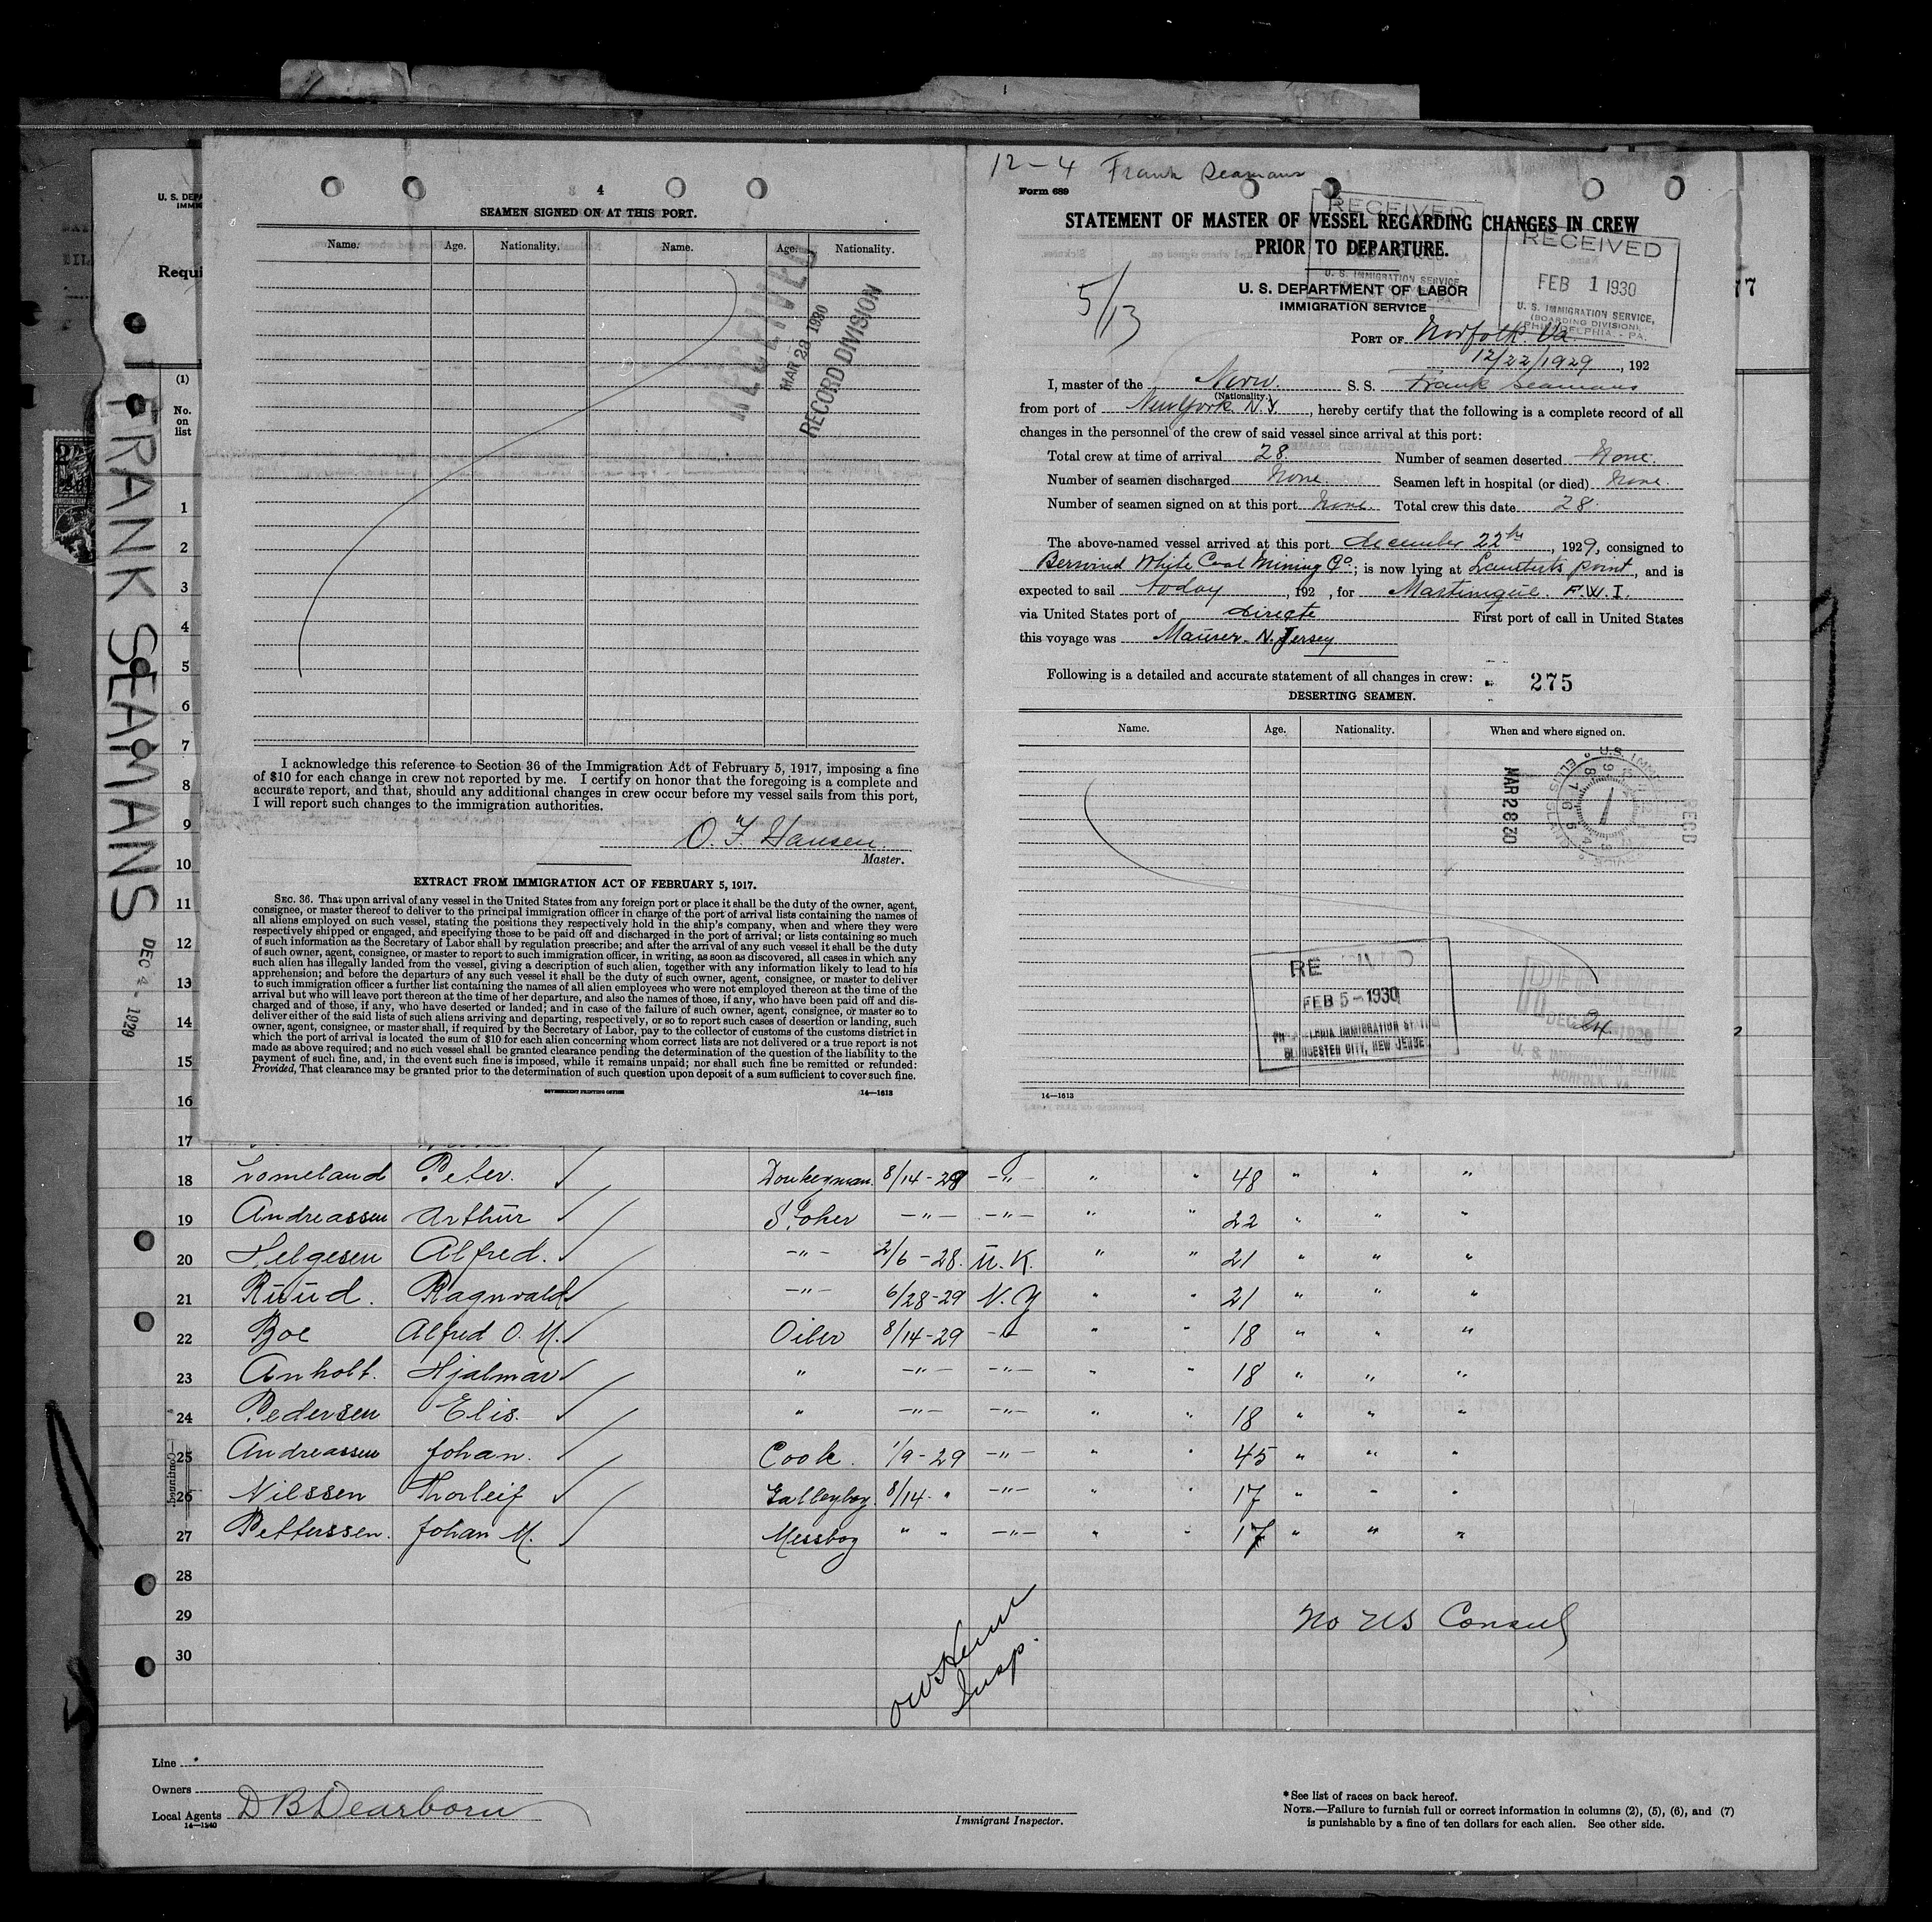 4
SEAMEN SIGNED ON AT THIS PORT.
Name. Age. Nationality. Name. Age. Nationality.
RECEIVED
MAR 28 1930
RECORD DIVISION
I acknowledge this reference to Section 36 of the Immigration Act of February 5, 1917, imposing a fine
of $10 for each change in crew not reported by me. I certify on honor that the foregoing is a complete and
accurate report, and that, should any additional changes in crew occur before my vessel sails from this port,
I will report such changes to the immigration authorities.
O. F. Hansen.
Master.
EXTRACT FROM IMMIGRATION ACT OF FEBRUARY 5, 1917.
SEC. 36. That upon arrival of any vessel in the United States from any foreign port or place it shall be the duty of the owner, agent,
consignee, or master thereof to deliver to the principal immigration officer in charge of the port of arrival lists containing the names of
all aliens employed on such vessel, stating the positions they respectively hold in the ship's company, when and where they were
respectively shipped or engaged, and specifying those to be paid off and discharged in the port of arrival; or lists containing so much
of such information as the Secretary of Labor shall by regulation prescribe; and after the arrival of any such vessel it shall be the duty
of such owner, agent, consignee, or master to report to such immigration officer, in writing, as soon as discovered, all cases in which any
such alien has illegally landed from the vessel, giving a description of such alien, together with any information likely to lead to his
apprehension; and before the departure of any such vessel it shall be the duty of such owner, agent, consignee, or master to deliver
to such immigration officer a further list containing the names of all alien employees who were not employed thereon at the time of the
arrival but who will leave port thereon at the time of her departure, and also the names of those, if any, who have been paid off and dis-
charged and of those, if any, who have deserted or landed; and in case of the failure of such owner, agent, consignee, or master so to
deliver either of the said lists of such aliens arriving and departing, respectively, or so to report such cases of desertion or landing, such
owner, agent, consignee, or master shall, if required by the Secretary of Labor, pay to the collector of customs of the customs district in
which the port of arrival is located the sum of $10 for each alien concerning whom correct lists are not delivered or a true report is not
made as above required; and no such vessel shall be granted clearance pending the determination of the question of the liability to the
payment of such fine, and, in the event such fine is imposed, while it remains unpaid; nor shall such fine be remitted or refunded:
Provided, That clearance may be granted prior to the determination of such question upon deposit of a sum sufficient to cover such fine.
GOVERNMENT PRINTING OFFICE 14—1613
12-4 Frank Seamans
Form 689
STATEMENT OF MASTER OF VESSEL REGARDING CHANGES IN CREW
PRIOR TO DEPARTURE.
RECEIVED
U. S. IMMIGRATION SERVICE
RECEIVED
FEB 1 1930
U. S. IMMIGRATION SERVICE,
(BOARDING DIVISION)
PHILADELPHIA - PA.
5/13
U. S. DEPARTMENT OF LABOR
IMMIGRATION SERVICE
PORT OF Norfolk Va
12/22/1929, 192
I, master of the Norw. S. S. Frank Seamans
(Nationality.)
from port of New York N.Y., hereby certify that the following is a complete record of all
changes in the personnel of the crew of said vessel since arrival at this port:
Total crew at time of arrival 28. Number of seamen deserted None.
Number of seamen discharged None Seamen left in hospital (or died) None.
Number of seamen signed on at this port None. Total crew this date 28.
The above-named vessel arrived at this port december 22th, 1929, consigned to
Berwind White Coal Mining Co.; is now lying at Lamberts point, and is
expected to sail today, 192 , for Martinique. F.W.I.
via United States port of directe First port of call in United States
this voyage was Maurer. N. Jersey
Following is a detailed and accurate statement of all changes in crew:
275
DESERTING SEAMEN.
Name. Age. Nationality. When and where signed on.
MAR 28 30
RECD
FEB 5 - 1930
PHILADELPHIA IMMIGRATION STATION
GLOUCESTER CITY, NEW JERSEY
U. S. IMMIGRATION SERVICE
NORFOLK, VA.
14—1613
U. S. DEPA
IMMI
Requi
77
FRANK SEAMANS
DEC 4 - 1929
(1)
No. on list
1
2
3
4
5
6
7
8
9
10
11
12
13
14
15
16
17
18 Lomeland Peter. Donkeyman. 8/14-29 -"- " " 48 " " "
19 Andreassen Arthur Stoker -"- -"- " " 22 " " "
20 Helgesen Alfred. -"- 2/6-28. U.K. " " 21 " " "
21 Ruud. Ragnvald -"- 6/28-29 N.Y " " 21 " " "
22 Boe Alfred O. M. Oiler 8/14-29 -"- " " 18 " " "
23 Anholt. Hjalmar " -"- -"- " " 18 " " "
24 Pedersen Elis. " -"- -"- " " 18 " " "
25 Andreassen Johan. Cook. 1/9-29 -"- " " 45 " " "
26 Nilssen Thorleif Galleyboy. 8/14 " -"- " " 17 " " "
27 Petterssen. Johan M. Messboy " " -"- " " 17 " " "
28
29
30
Continued
Insp.
No US Consul
Line
Owners
Local Agents D B Dearborn
14—1240
Immigrant Inspector.
*See list of races on back hereof.
NOTE.—Failure to furnish full or correct information in columns (2), (5), (6), and (7)
is punishable by a fine of ten dollars for each alien. See other side.